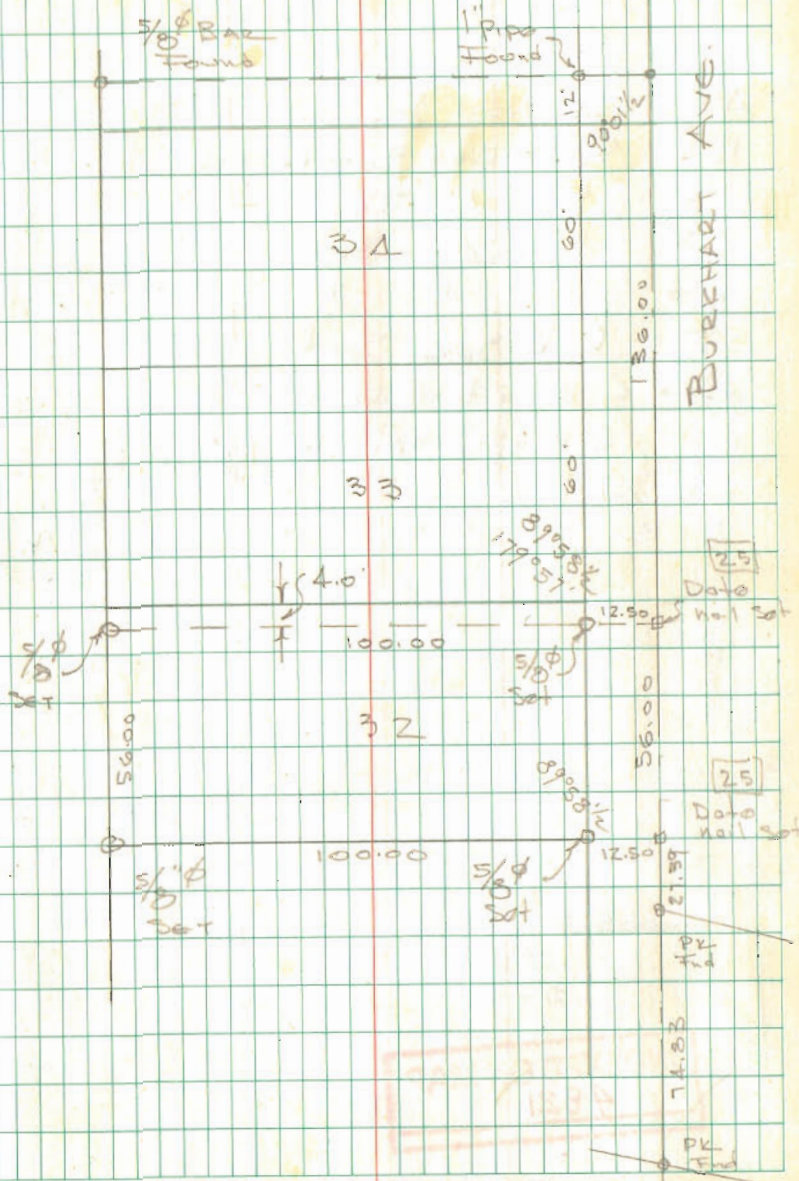 5/8"ø BAR
Found
1" Pipe
Found
12'
90°01½
BURKHART AVE.
34
60'
136.00
33
60'
89°58½
179°57'
25
Date
nail set
4.0'
12.50
100.00
5/8"ø
Set
5/8"ø
Set
32
56.00
56.00
89°58½
25
Date
nail set
100.00
12.50
5/8"ø
Set
5/8"ø
Set
21.59
PK
Fnd
74.83
PK
Fnd